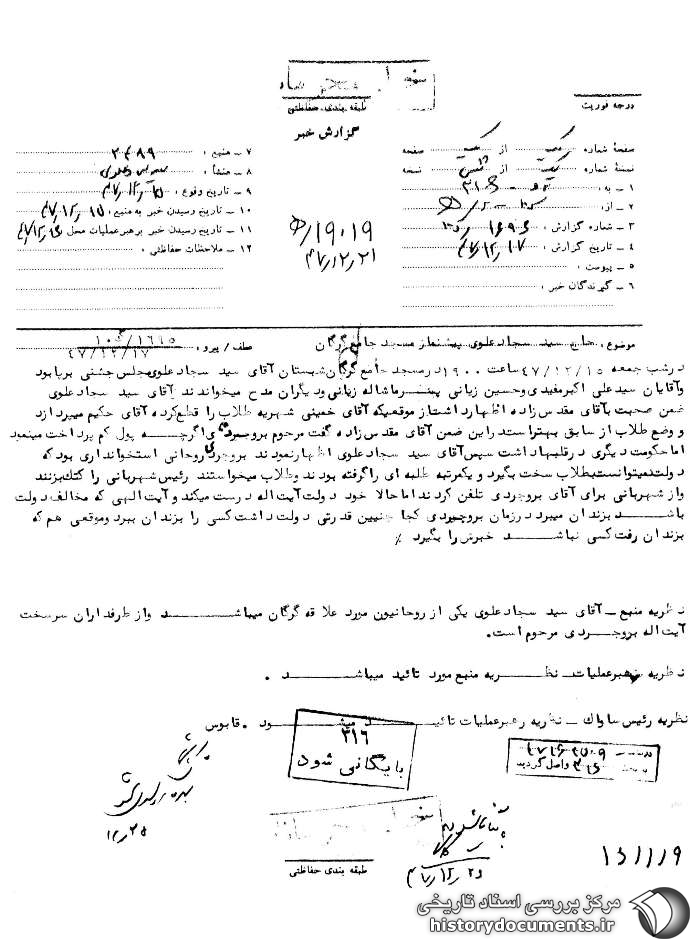 درجه فوریت
طبقه بندی حفاظتی
گزارش خبر
صفحه شماره یک از یک صفحه
نسخه شماره یک از نسخه
۱ ـ به : ۳۱۶
۲ ـ از : ۵/ه
۳ ـ شماره گزارش :
۴ ـ تاریخ گزارش : ۴۷/۱۲/۱۷
۵ ـ پیوست :
۶ ـ گیرندگان خبر :
۷ ـ منبع : ۲۴۸۹
۸ ـ منشأ :
۹ ـ تاریخ وقوع : ۴۷/۱۲/۱۵
۱۰ ـ تاریخ رسیدن خبر به منبع : ۴۷/۱۲/۱۵
۱۱ ـ تاریخ رسیدن خبر برهبر عملیات محل : ۴۷/۱۲/۱۶
۱۲ ـ ملاحظات حفاظتی :
۱۹۰۱۹/ه
۴۷/۱۲/۲۱
موضوع : حاج سید سجاد علوی پیشنماز مسجد جامع گرگان
عطف / پیرو :
۴۷/۱۲/۱۷
درشب جمعه ۴۷/۱۲/۱۵ ساعت ۱۹۰۰ درمسجد جامع گرگان شبستان آقای سید سجاد علوی مجلس جشنی برپا بود
وآقایان سید علی اکبر مفیدی وحسین زیانی پسر ماشاله زیانی ودیگران مدح میخواندند آقای سید سجاد علوی
ضمن صحبت بآقای مقدس زاده اظهار داشت از موقعیکه آقای خمینی شهریه طلاب را قطع کرده آقای حکیم میپردازد
و وضع طلاب از سابق بهتر است در این ضمن آقای مقدس زاده گفت مرحوم بروجردی اگرچه پول کم پرداخت مینمود
اما حکومت دیگری در قلبها داشت سپس آقای سید سجاد علوی اظهار نمودند بروجردی روحانی استخوانداری بود که
دولت نمیتوانست بطلاب سخت بگیرد و یکمرتبه طلبه ای را گرفته بودند وطلاب میخواستند رئیس شهربانی را کتک بزنند
واز شهربانی برای آقای بروجردی تلفن کردند اما حالا خود دولت آیت اله درست میکند و آیت الهی که مخالف دولت
باشد بزندان میبرد در زمان بروجردی کجا چنین قدرتی دولت داشت کسی را بزندان ببرد وموقعی هم که
بزندان رفت کسی نباشد خبرش را بگیرد ٪
نظریه منبع ـ آقای سید سجاد علوی یکی از روحانیون مورد علاقه گرگان میباشد واز طرفداران سرسخت
آیت اله بروجردی مرحوم است.
نظریه رهبر عملیات ـ نظریه منبع مورد تائید میباشد .
نظریه رئیس ساواک ـ نظریه رهبر عملیات تائید میشود . قابوس
۳۱۶
بایگانی شود
واصل گردید
۱۲/۲۵
۴۷/۱۲/۲۵
۱۶۱۱۱۹
طبقه بندی حفاظتی
مرکز بررسی اسناد تاریخی
historydocuments.ir